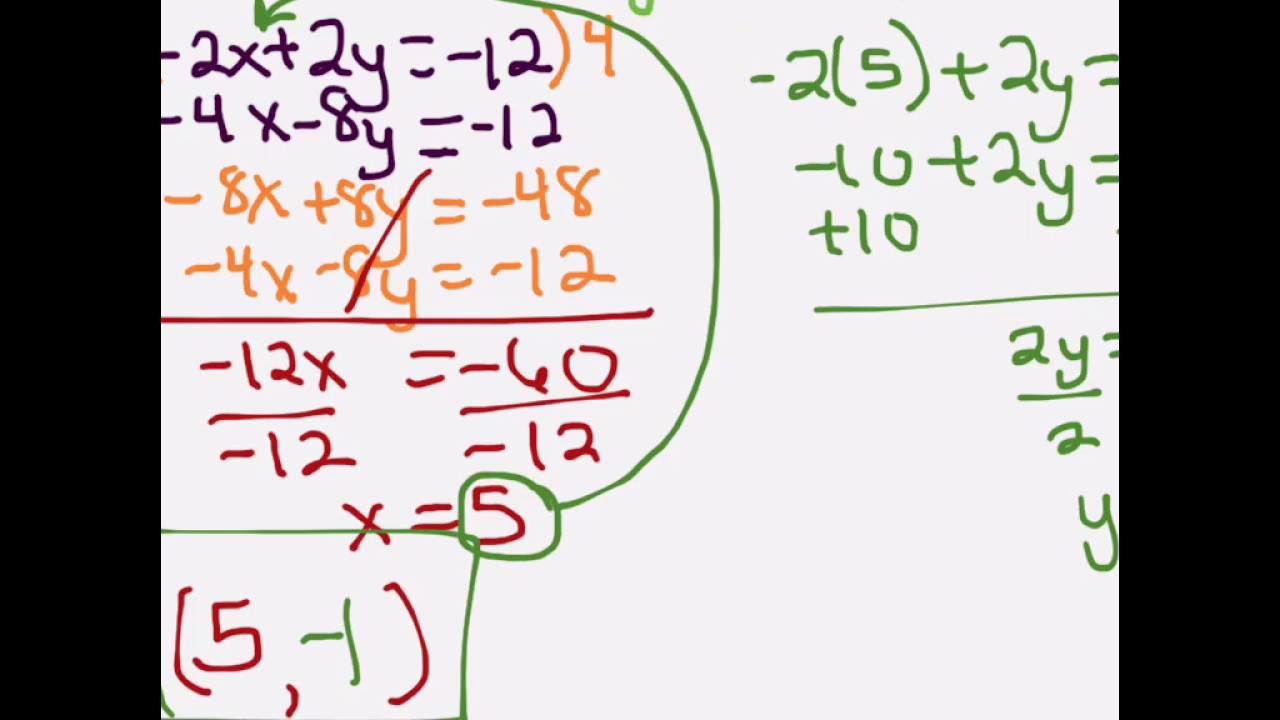 -2x+2y=-12)4
-4x-8y=-12
-8x+8y=-48
-4x-8y=-12
-12x =-60
-12 -12
x=5
(5,-1)
-2(5)+2y=
-10+2y=
+10
2y=
2
y